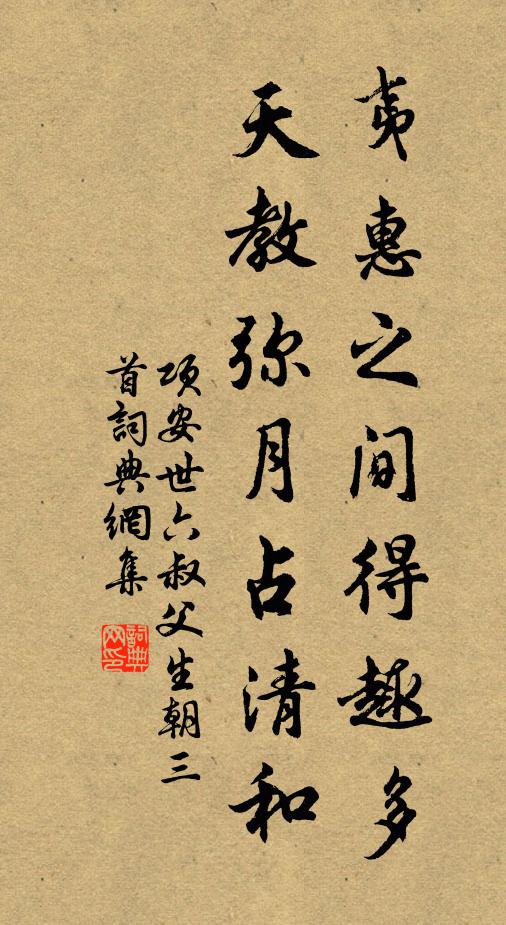 夷惠之间得趣多
天教弥月占清和
项安世六叔父生朝三
首詞典網集
詞典
网印